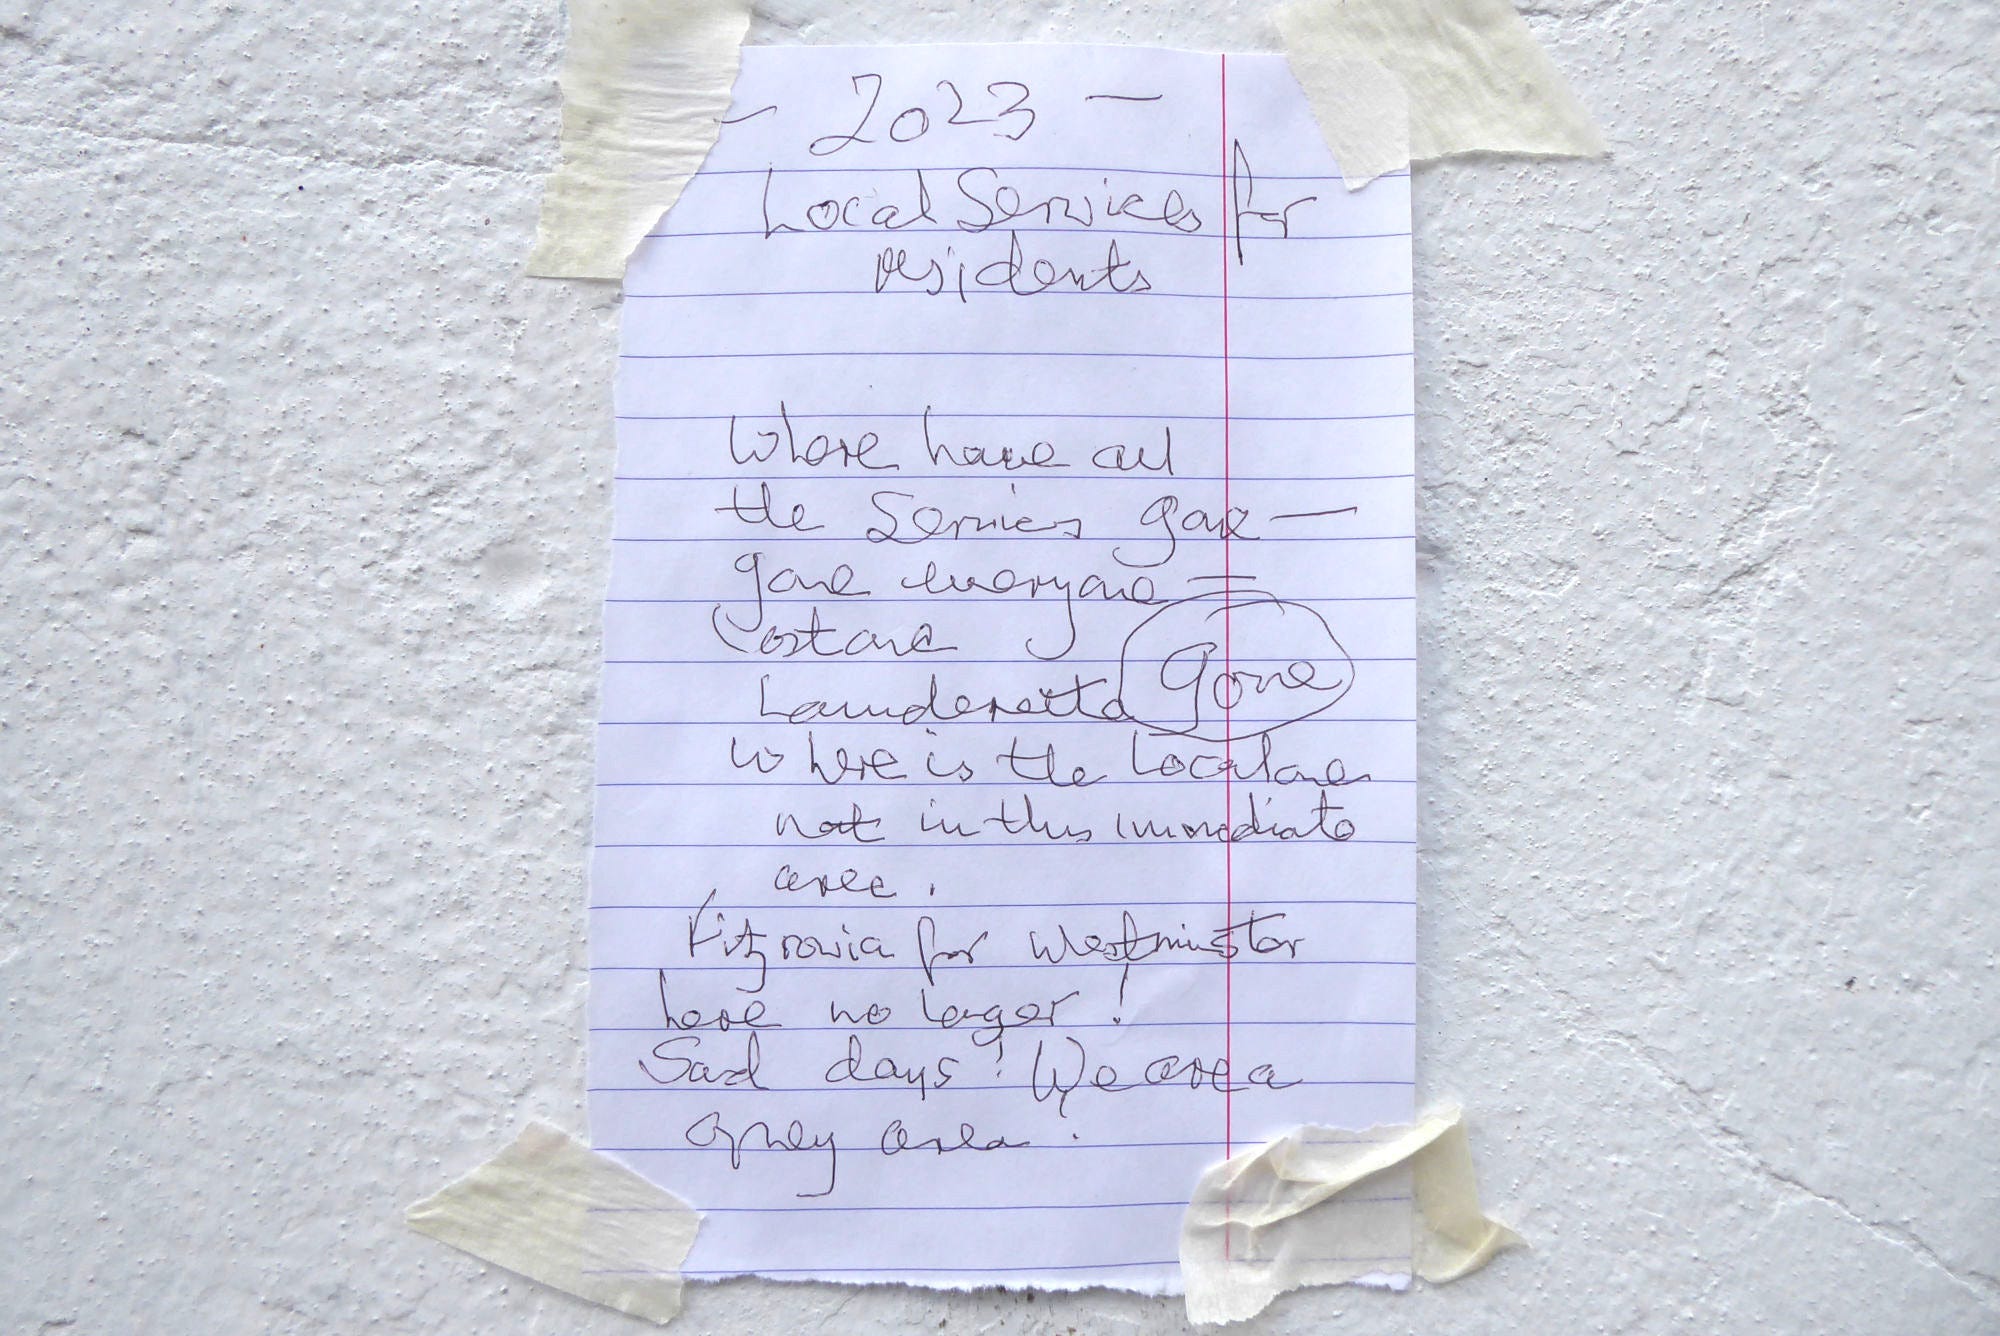 - 2023 -
Local Services for
residents
Where have all
the Services gone —
gone everyone =
Launderette gone
Where is the Local one
not in this immediate
area.
Fitzrovia for Westminster
here no longer!
Sad days! We are a
grey area.